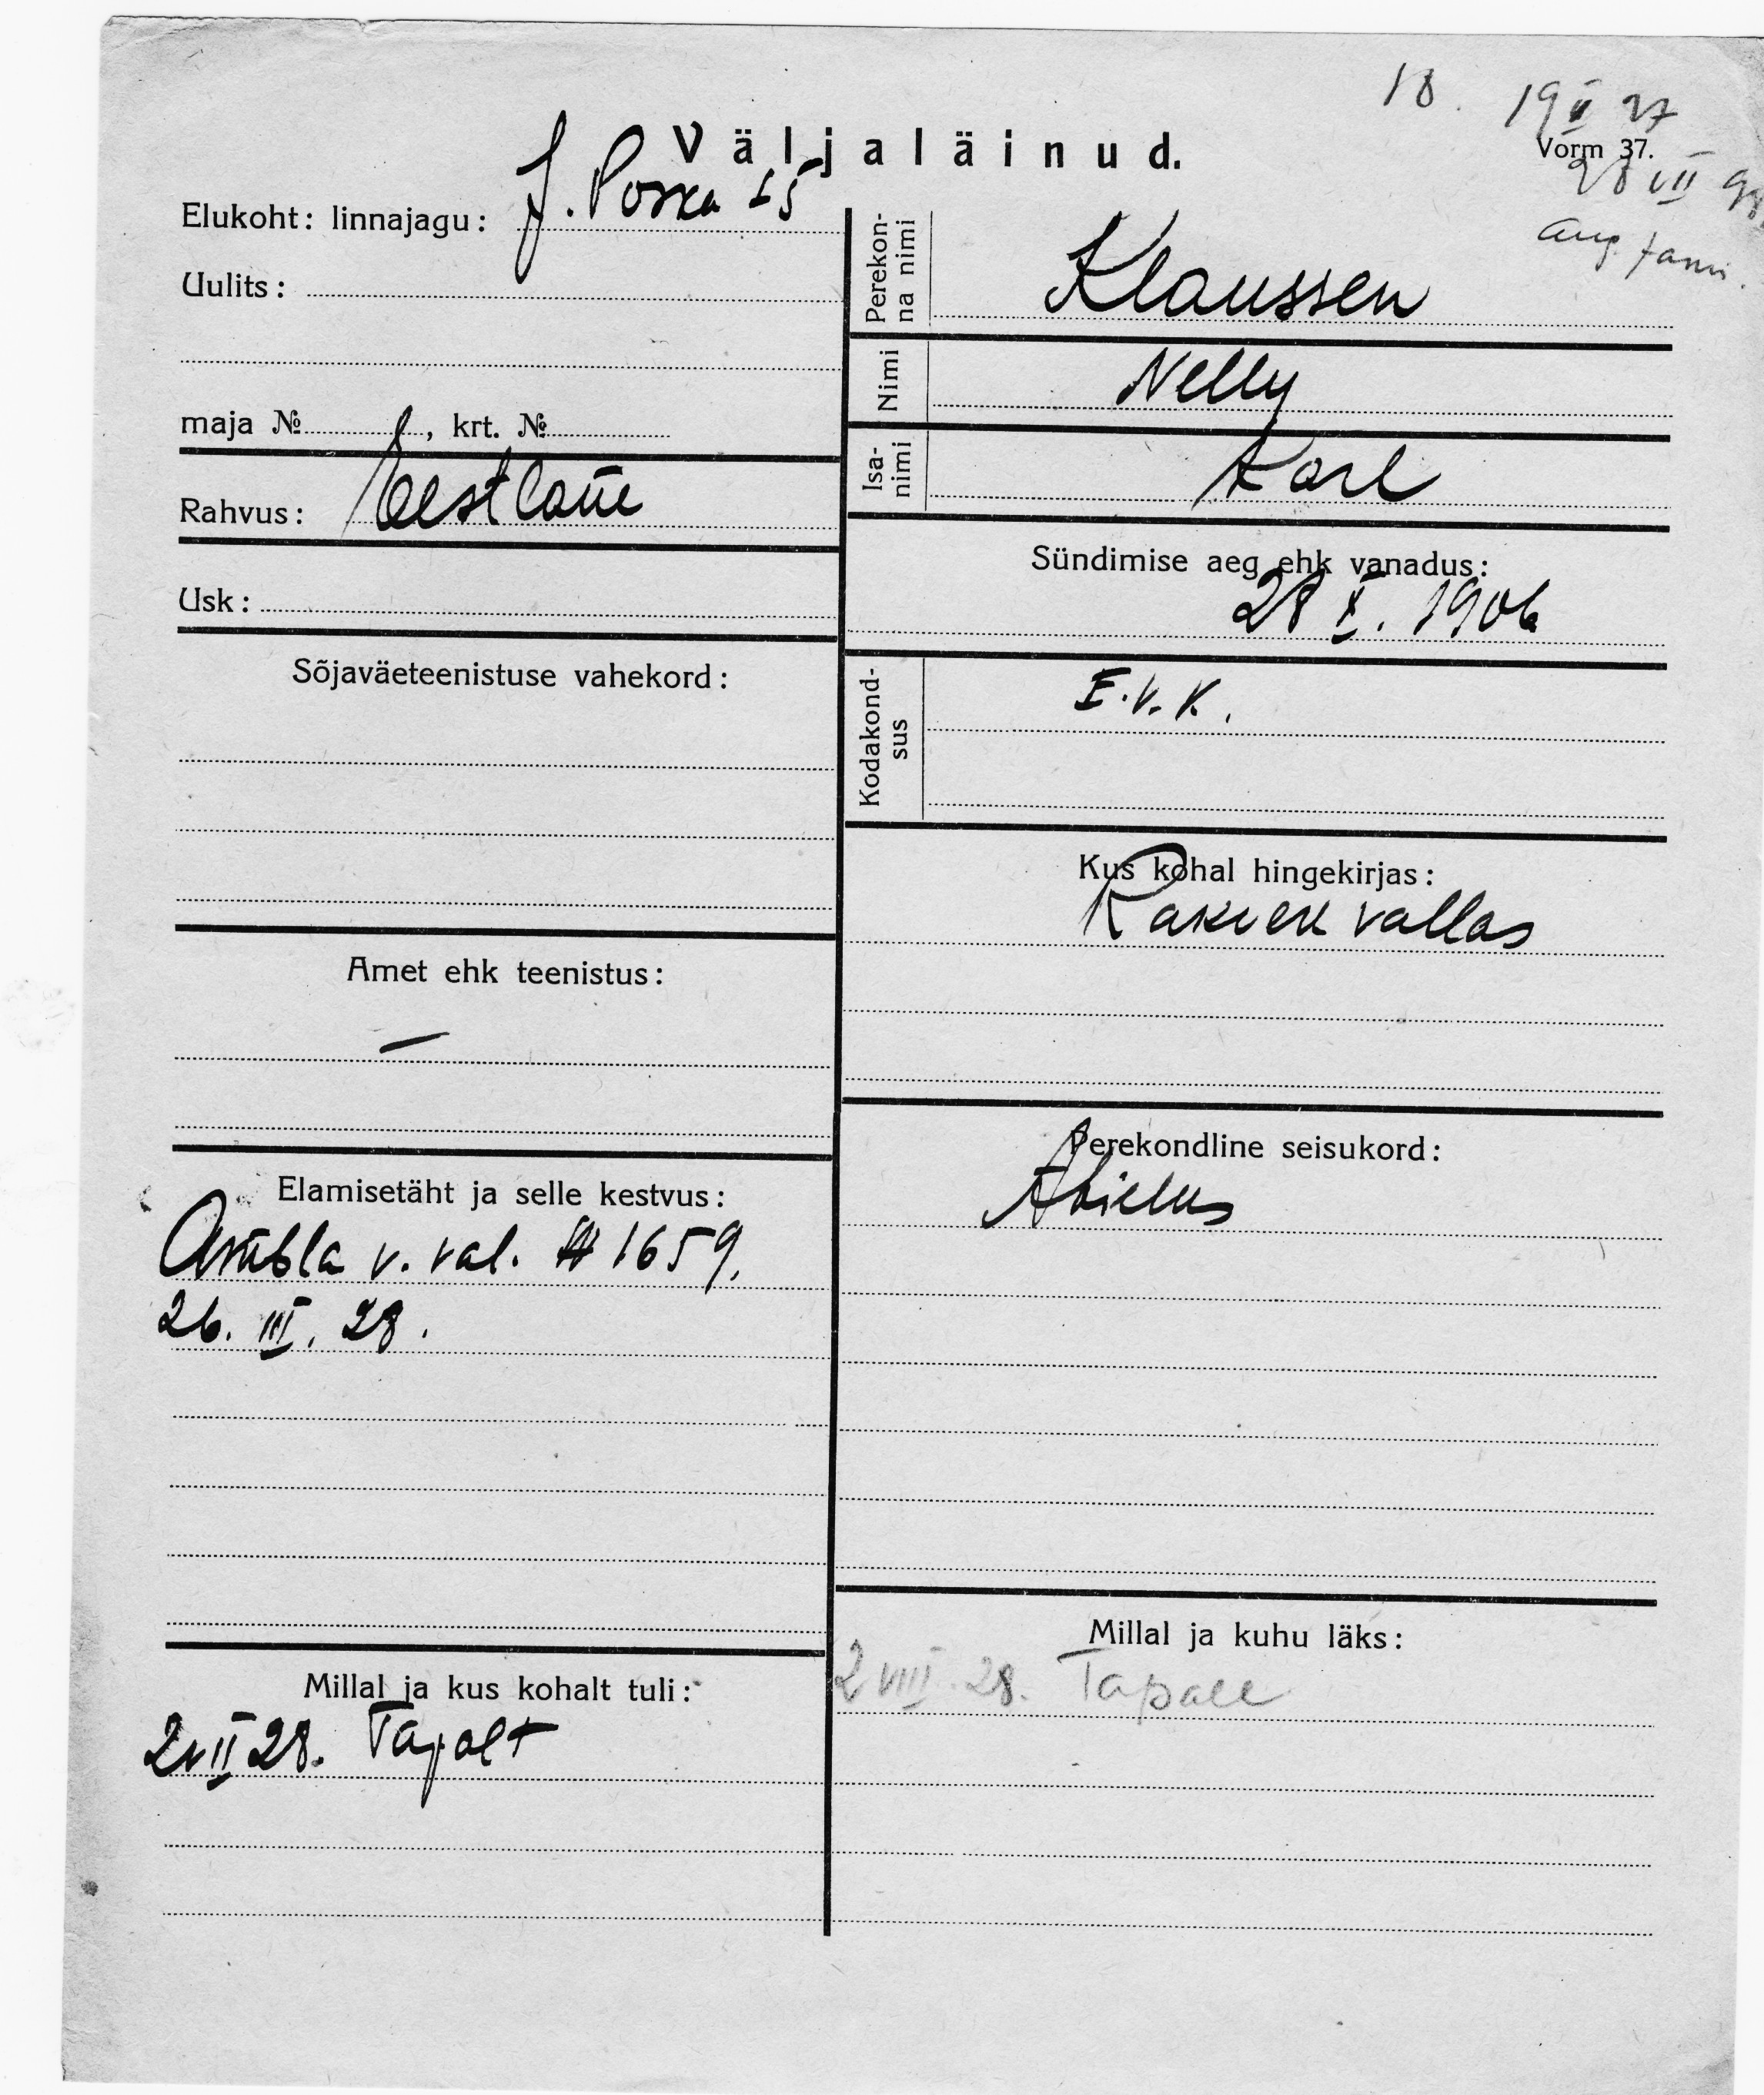 18. 19 II 27
Väljaläinud.
Vorm 37.
28 VII
aug.
Elukoht: linnajagu: J. Poska 15
Uulits:
maja №, krt. №
Rahvus: Eestlane
Usk:
Sõjaväeteenistuse vahekord:
Amet ehk teenistus:
—
Elamisetäht ja selle kestvus:
v. val. # 1659.
26. III. 28.
Millal ja kus kohalt tuli:
2 VII 28. Tapalt
Perekon-
na nimi
Klaussen
Nimi
Nelly
Isa-
nimi
Karl
Sündimise aeg ehk vanadus:
28 X. 1906
Kodakond-
sus
E.V.K.
Kus kohal hingekirjas:
Rakvere vallas
Perekondline seisukord:
Abielus
Millal ja kuhu läks:
2 VIII. 28. Tapale